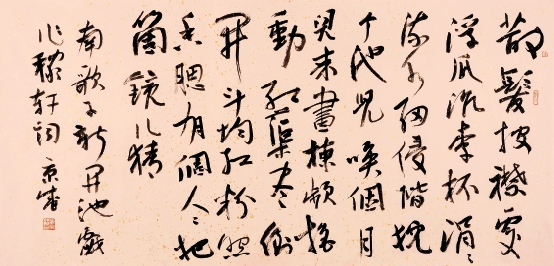 散髮披襟處
浮瓜沉李杯涓〻
流水細侵階
个池兒喚個月
兒來畫棟頻搖
動紅蕖盡倒
開斗均紅粉照
香腮有個人〻把
箇鏡儿猜
南歌子新開池戲
作稼軒詞